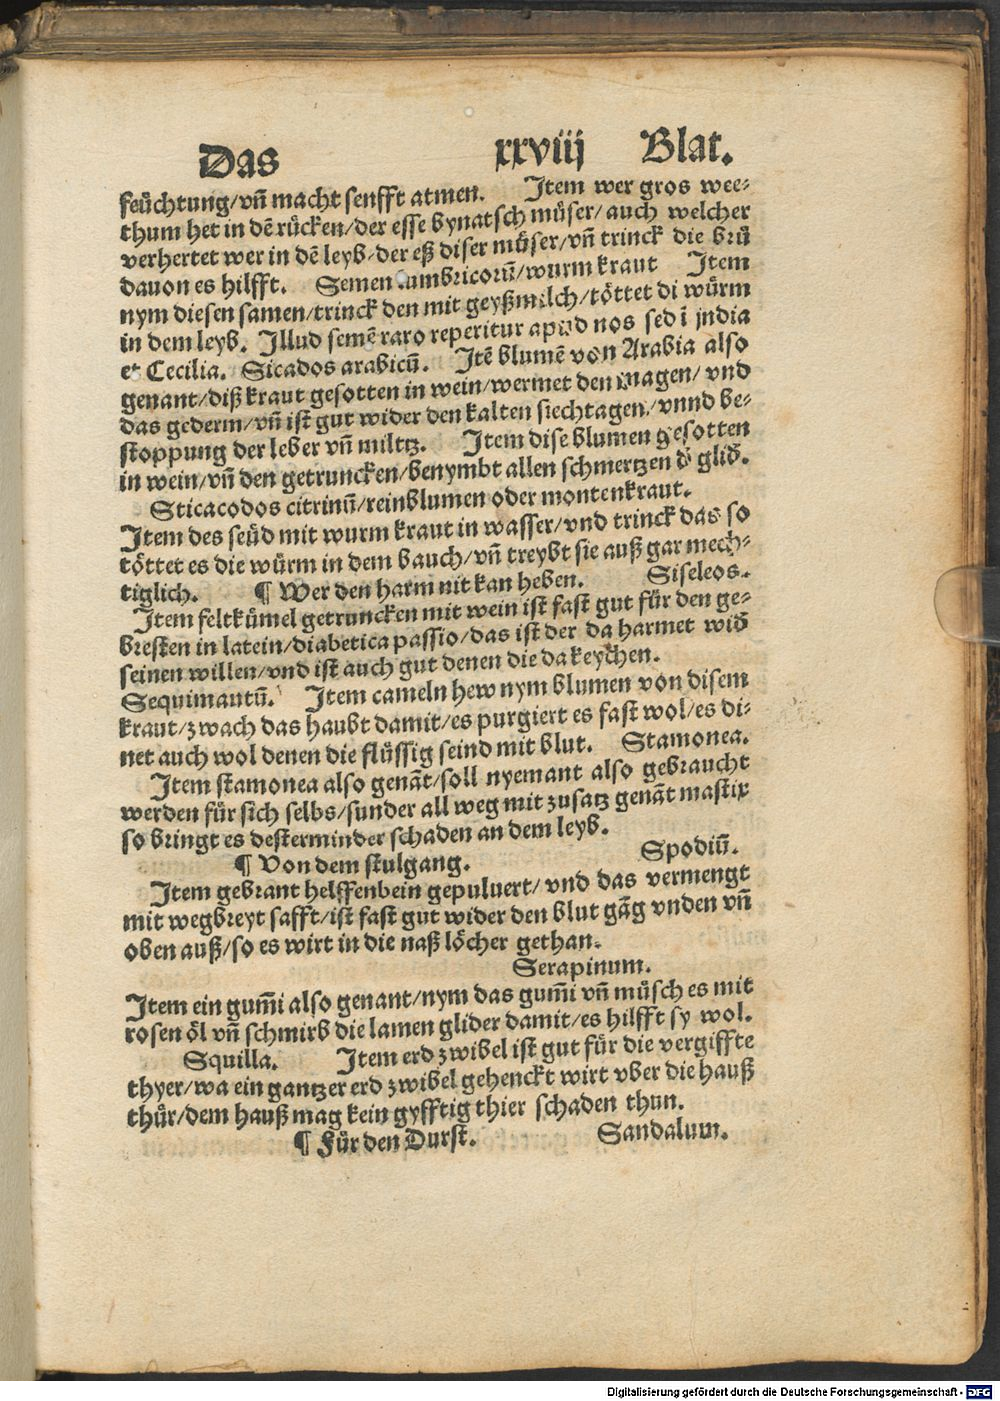 Das xxviij Blat.
feüchtung/vñ macht senfft atmen. Item wer gros wee⸗
thum het in dẽ rücken/der esse bynatsch müser/auch welcher
verhertet wer in dẽ leyb/der eß diser müser/vñ trinck die brü
dauon es hilfft. Semen umbricorũ/wurm kraut Item
nym diesen samen/trinck den mit geyßmilch/töttet di würm
in dem leyb. Illud semẽ raro reperitur apud nos sed ĩ jndia
et Cecilia. Sicados arabicũ. Itẽ blumẽ von Arabia also
genant/diß kraut gesotten in wein/wermet den magen/vnd
das gederm/vñ ist gut wider den kalten siechtagen/vnnd be⸗
stoppung der leber vñ miltz. Item dise blumen gesotten
in wein/vñ den getruncken/benymbt allen schmertzen d̕ glid̕.
Sticacodos citrinũ/reinblumen oder montenkraut.
Item des seüd mit wurm kraut in wasser/vnd trinck das so
töttet es die würm in dem bauch/vñ treybt sie auß gar mech⸗
tiglich. ¶ Wer den harm nit kan heben. Siseleos.
Item feltkümel getruncken mit wein ist fast gut für den ge⸗
bresten in latein/diabetica passio/das ist der da harmet wid̕
seinen willen/vnd ist auch gut denen die da keychen.
Sequimantũ. Item cameln hew nym blumen von disem
kraut/zwach das haubt damit/es purgiert es fast wol/es di⸗
net auch wol denen die flüssig seind mit blut. Stamonea.
Item stamonea also genãt/soll nyemant also gebraucht
werden für sich selbs/sunder all weg mit zusatz genãt mastix
so bringt es desterminder schaden an dem leyb.
¶ Von dem stulgang. Spodiũ.
Item gebrant helffenbein gepuluert/vnd das vermengt
mit wegbreyt safft/ist fast gut wider den blut gãg vnden vñ
oben auß/so es wirt in die naß löcher gethan.
Serapinum.
Item ein gum̃i also genant/nym das gum̃i vñ müsch es mit
rosen öl vñ schmirb die lamen glider damit/es hilfft sy wol.
Squilla. Item erd zwibel ist gut für die vergiffte
thyer/wa ein gantzer erd zwibel gehenckt wirt vber die hauß
thür/dem hauß mag kein gyfftig thier schaden thun.
¶ Für den Durst. Sandalum.
Digitalisierung gefördert durch die Deutsche Forschungsgemeinschaft - DFG